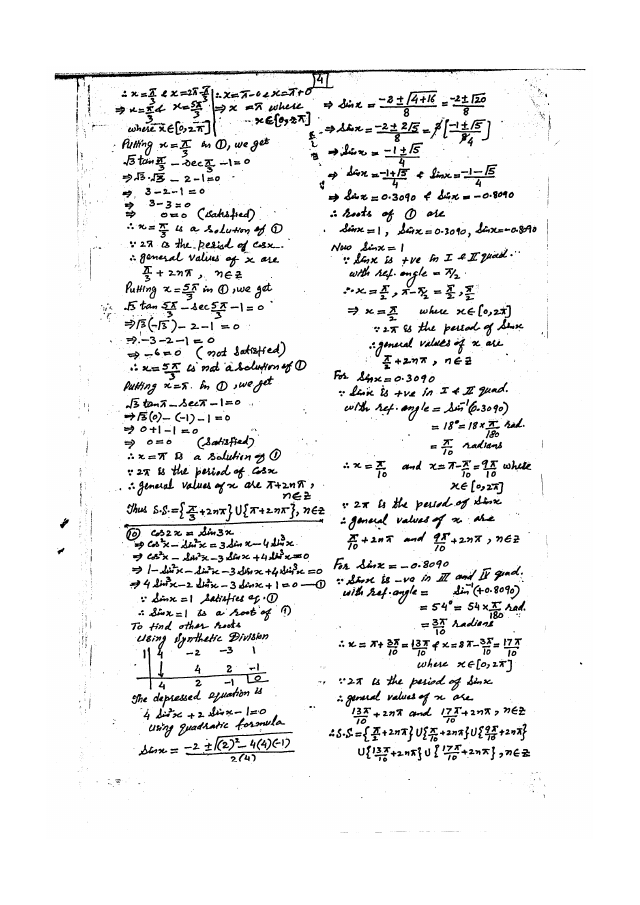 4
∴ x = π/3 & x = 2π - π/3 | ∴ x = π - 0 & x = π + 0
⇒ x = π/3 & x = 5π/3 | ⇒ x = π where
where x ∈ [0, 2π] | x ∈ [0, 2π]
Putting x = π/3 in ①, we get
√3 tan π/3 - sec π/3 - 1 = 0
⇒ √3·√3 - 2 - 1 = 0
⇒ 3 - 2 - 1 = 0
⇒ 3 - 3 = 0
⇒ 0 = 0 (Satisfied)
∴ x = π/3 is a solution of ①
∵ 2π is the period of cosx.
∴ general values of x are
π/3 + 2nπ, n∈Z
Putting x = 5π/3 in ①, we get
√3 tan 5π/3 - sec 5π/3 - 1 = 0
⇒ √3(-√3) - 2 - 1 = 0
⇒ -3 - 2 - 1 = 0
⇒ -6 = 0 (not Satisfied)
∴ x = 5π/3 is not a solution of ①
Putting x = π in ①, we get
√3 tanπ - secπ - 1 = 0
⇒ √3(0) - (-1) - 1 = 0
⇒ 0 + 1 - 1 = 0
⇒ 0 = 0 (Satisfied)
∴ x = π is a solution of ①
∵ 2π is the period of cosx
∴ general values of x are π + 2nπ,
n∈Z
Thus S.S = {π/3 + 2nπ} ∪ {π + 2nπ}, n∈Z
⑩ cos2x = Sin3x
⇒ cos²x - Sin²x = 3Sinx - 4Sin³x
⇒ cos²x - Sin²x - 3Sinx + 4Sin³x = 0
⇒ 1 - Sin²x - Sin²x - 3Sinx + 4Sin³x = 0
⇒ 4Sin³x - 2Sin²x - 3Sinx + 1 = 0 —①
∵ Sinx = 1 Satisfies eq. ①
∴ Sinx = 1 is a root of ①
To find other roots
Using Synthetic Division
1 | 4 -2 -3 1
↓ 4 2 -1
4 2 -1 | 0
The depressed equation is
4Sin²x + 2Sinx - 1 = 0
Using quadratic formula
Sinx = (-2 ± √((2)² - 4(4)(-1))) / 2(4)
⇒ Sinx = (-2 ± √(4+16)) / 8 = (-2 ± √20) / 8
⇒ Sinx = (-2 ± 2√5) / 8 = 2[(-1 ± √5) / 8 4]
⇒ Sinx = (-1 ± √5) / 4
⇒ Sinx = (-1+√5) / 4 & Sinx = (-1-√5) / 4
⇒ Sinx = 0.3090 & Sinx = -0.8090
∴ Roots of ① are
Sinx = 1, Sinx = 0.3090, Sinx = -0.8090
Now Sinx = 1
∵ Sinx is +ve in I & II quad.
with ref. angle = π/2
∴ x = π/2, π - π/2 = π/2, π/2
⇒ x = π/2 where x∈[0, 2π]
∵ 2π is the period of Sinx
∴ general values of x are
π/2 + 2nπ, n∈Z
For Sinx = 0.3090
∵ Sinx is +ve in I & II quad.
with ref. angle = Sin⁻¹(0.3090)
= 18° = 18 × π/180 rad.
= π/10 radians
∴ x = π/10 and x = π - π/10 = 9π/10 where
x∈[0, 2π]
∵ 2π is the period of Sinx
∴ general values of x are
π/10 + 2nπ and 9π/10 + 2nπ, n∈Z
For Sinx = -0.8090
∵ Sinx is -ve in III and IV quad.
with ref. angle = Sin⁻¹(+0.8090)
= 54° = 54 × π/180 rad.
= 3π/10 radians
∴ x = π + 3π/10 = 13π/10 & x = 2π - 3π/10 = 17π/10
where x∈[0, 2π]
∵ 2π is the period of Sinx
∴ general values of x are
13π/10 + 2nπ and 17π/10 + 2nπ, n∈Z
∴ S.S = {π/2 + 2nπ} ∪ {π/10 + 2nπ} ∪ {9π/10 + 2nπ}
∪ {13π/10 + 2nπ} ∪ {17π/10 + 2nπ}, n∈Z